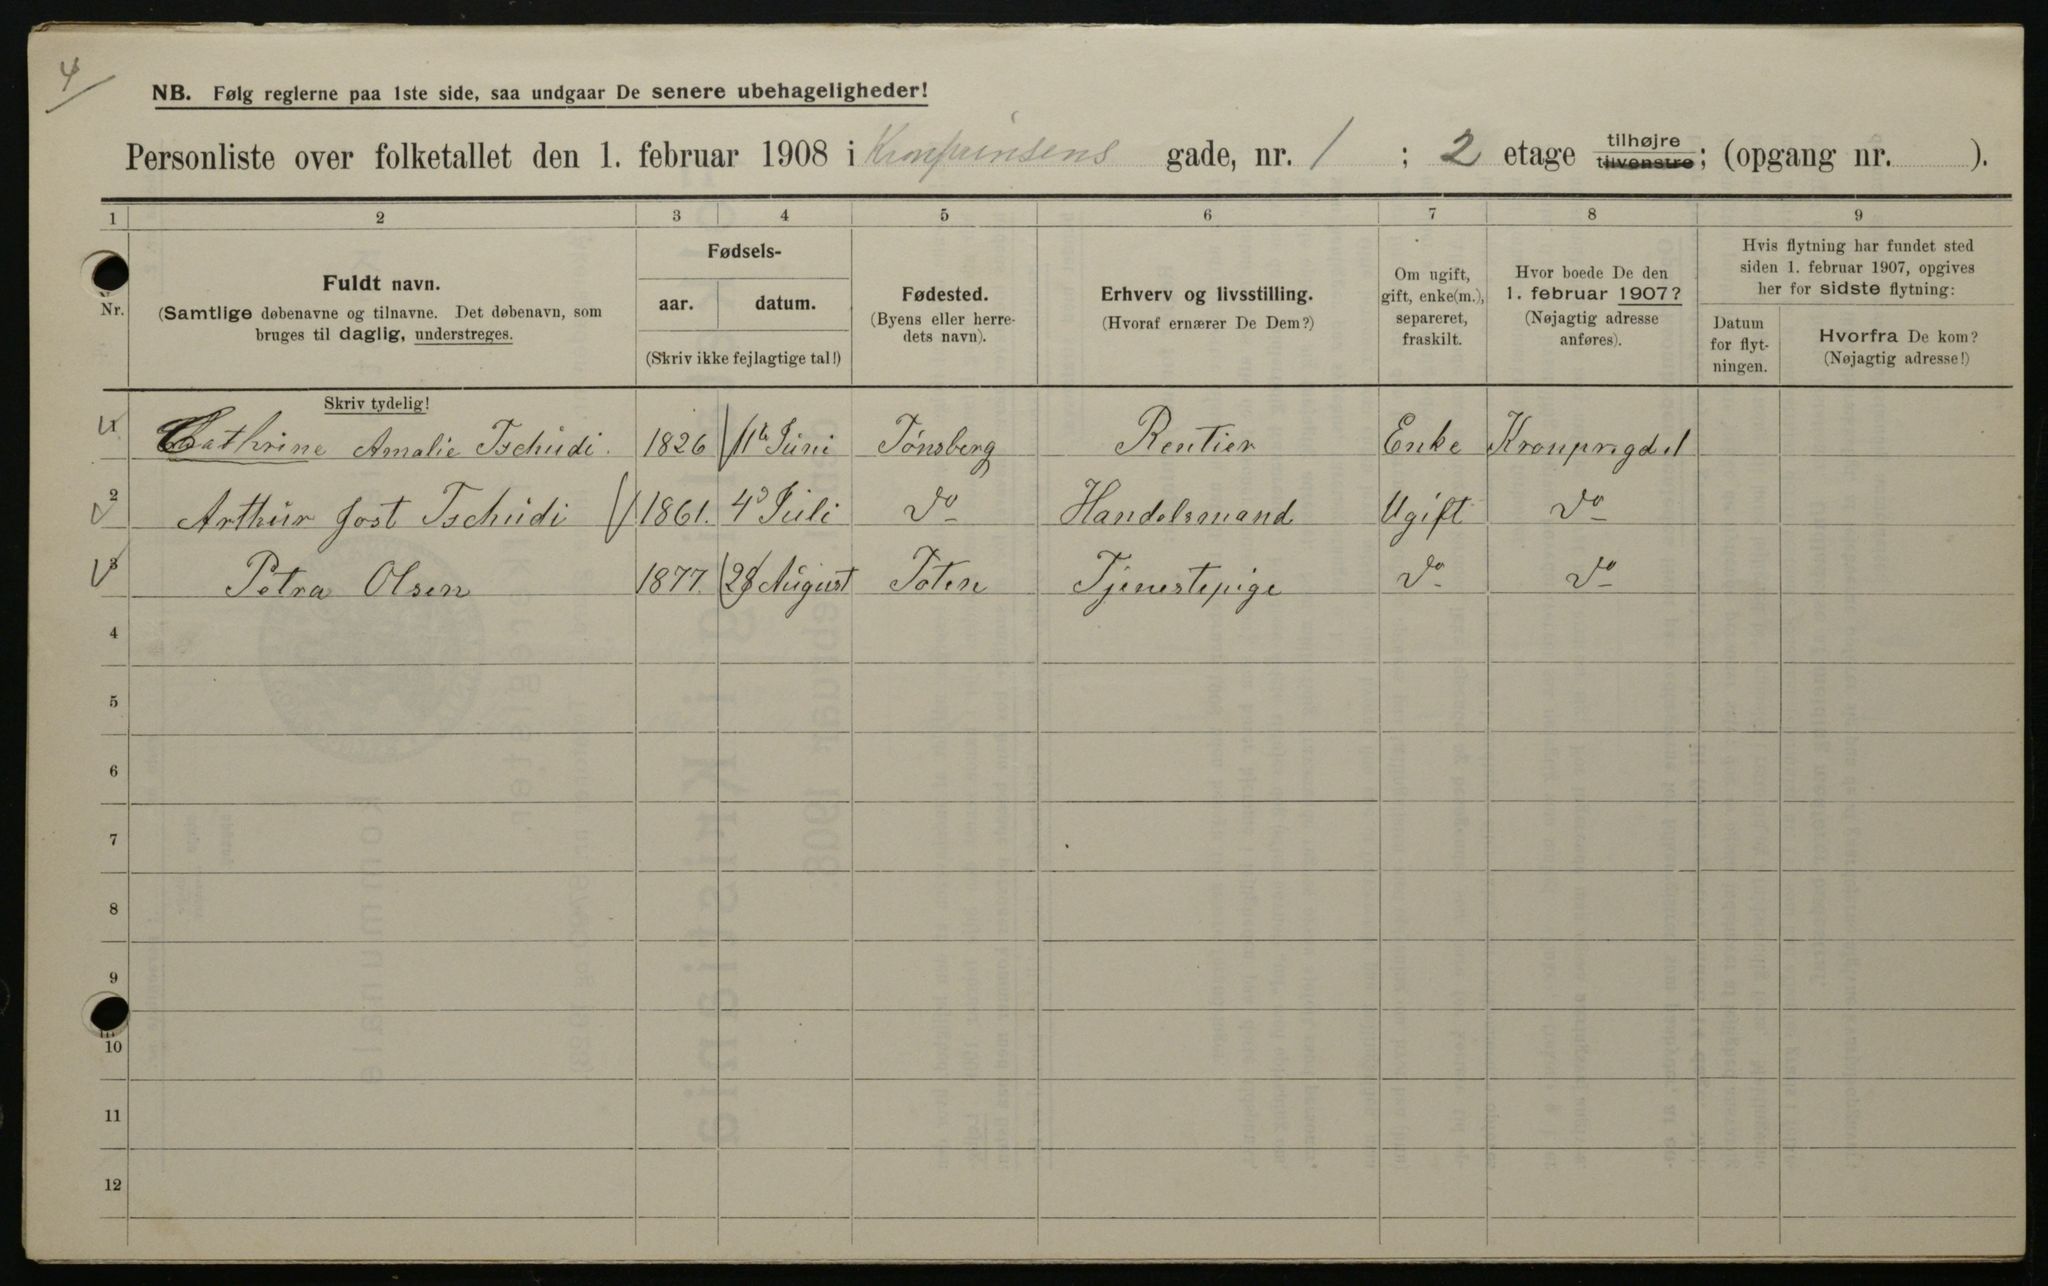 4
NB. Følg reglerne paa 1ste side, saa undgaar De senere ubehageligheder!
Personliste over folketallet den 1. februar 1908 i Kronprinsens gade, nr. 1 ; 2 etage tilhøjre tilvenstre; (opgang nr. ).
1 2 3 4 5 6 7 8 9
Nr.
Fuldt navn.
(Samtlige døbenavne og tilnavne. Det døbenavn, som
bruges til daglig, understreges.
Fødsels-
aar. datum.
(Skriv ikke fejlagtige tal!)
Fødested.
(Byens eller herre-
dets navn).
Erhverv og livsstilling.
(Hvoraf ernærer De Dem?)
Om ugift,
gift, enke(m.),
separeret,
fraskilt.
Hvor boede De den
1. februar 1907?
(Nøjagtig adresse
anføres).
Hvis flytning har fundet sted
siden 1. februar 1907, opgives
her for sidste flytning:
Datum
for flyt-
ningen.
Hvorfra De kom?
(Nøjagtig adresse!)
Skriv tydelig!
1 Cathrine Amalie Tschudi. 1826 11te Juni Tønsberg Rentier Enke
2 Arthur Jost Tschudi 1861. 4d Juli Do Handelsmand Ugift Do
3 Petra Olsen 1877. 28 August Toten Tjenestepige Do Do
4
5
6
7
8
9
10
11
12